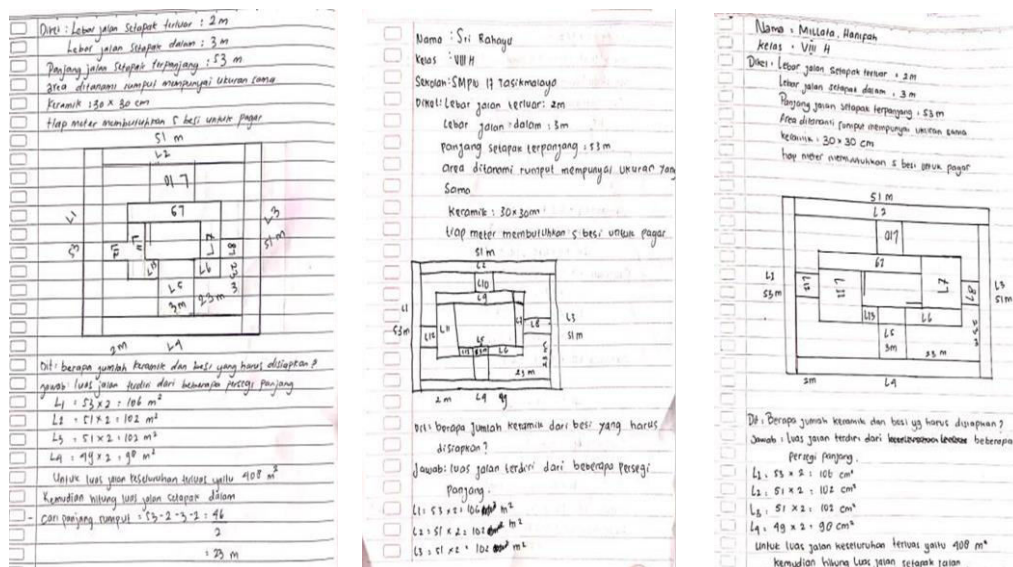 Diket : Lebar jalan Setapak terluar : 2 m
Lebar jalan Setapak dalam : 3 m
Panjang jalan Setapak terpanjang : 53 m
area ditanami rumput mempunyai ukuran sama
Keramik : 30 x 30 cm
tiap meter membutuhkan 5 besi untuk pagar
51 m
L2
L10
L1
L9
L3
53
51 m
L6
L5
3 m
23 m
2 m
L4
Dit : berapa jumlah keramik dan besi yang harus disiapkan ?
Jawab : luas jalan terdiri dari beberapa persegi panjang
L1 : 53 x 2 = 106 m²
L2 : 51 x 2 = 102 m²
L3 = 51 x 2 = 102 m²
L4 = 49 x 2 = 98 m²
Untuk luas jalan keseluruhan terluas yaitu 408 m²
Kemudian hitung luas jalan setapak dalam
- Cari panjang rumput = 53-2-3-2 = 46
2
= 23 m
Nama : Sri Rahayu
Kelas : VIII H
Sekolah : SMPN 17 Tasikmalaya
Diket : Lebar jalan terluar : 2m
Lebar jalan dalam : 3m
Panjang setapak terpanjang : 53 m
area ditanami rumput mempunyai ukuran yang
Sama
Keramik : 30x30m
tiap meter membutuhkan 5 besi untuk pagar
51 m
L2
L10
L9
L1
L3
53m
L11
L8
51 m
L5
L6
23 m
2 m
L4
Dit : berapa jumlah keramik dari besi yang harus
disiapkan ?
Jawab : luas jalan terdiri dari beberapa persegi
Panjang.
L1 : 53 x 2 = 106 m²
L2 = 51 x 2 = 102 m²
L3 = 51 x 2 = 102 m²
Nama : Millata. Hanipah
Kelas : VIII H
Diket : Lebar jalan Setapak terluar : 2m
Lebar jalan setapak dalam : 3 m
Panjang jalan setapak terpanjang : 53 m
Area ditanami rumput mempunyai ukuran sama
keramik : 30x30 cm
tiap meter membutuhkan 5 besi untuk pagar
51 m
L2
L10
L1
L3
53m
51m
L13
L6
L5
3m
23 m
2m
L4
Dit : Berapa jumlah keramik dan besi yg harus disiapkan ?
Jawab : luas jalan terdiri dari beberapa
Persegi panjang.
L1 : 53 x 2 = 106 cm²
L2 : 51 x 2 = 102 cm²
L3 : 51 x 2 = 102 cm²
L4 = 49 x 2 = 98 cm²
Untuk luas jalan keseluruhan terluas yaitu 408 m²
kemudian hitung luas jalan setapak jalan